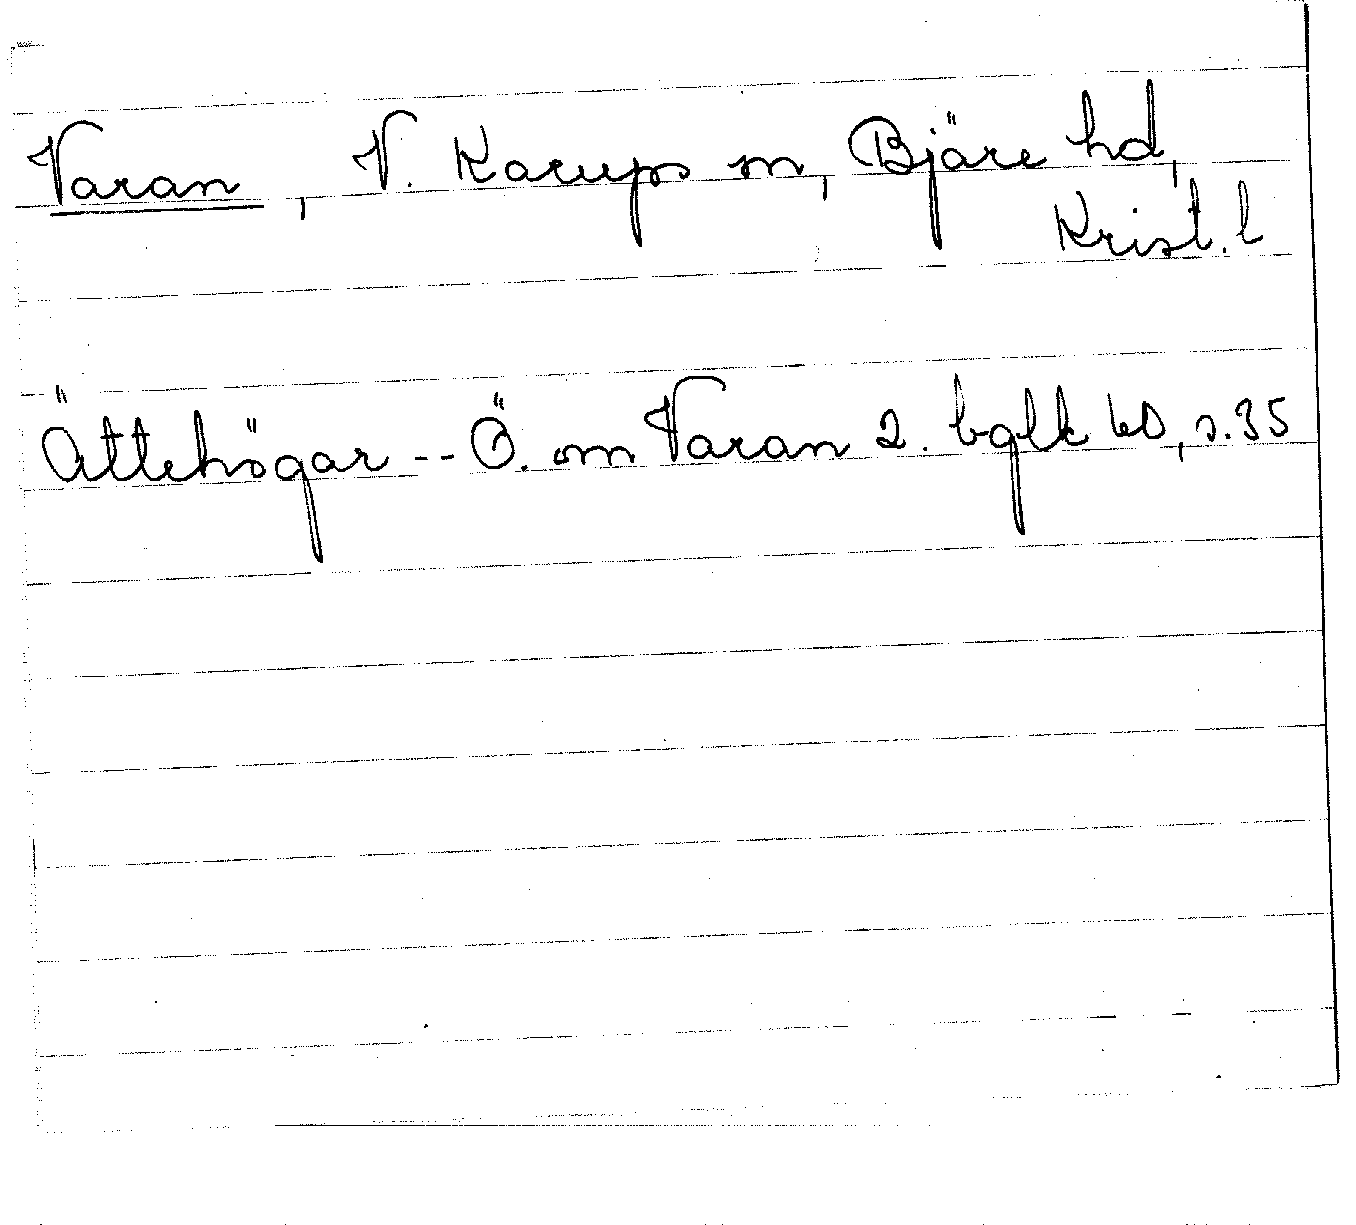 Varan, V. Karups sn, Bjäre hd,
Krist. l
Ättehögar -- Ö. om Varan 2. bglk bD, s. 35